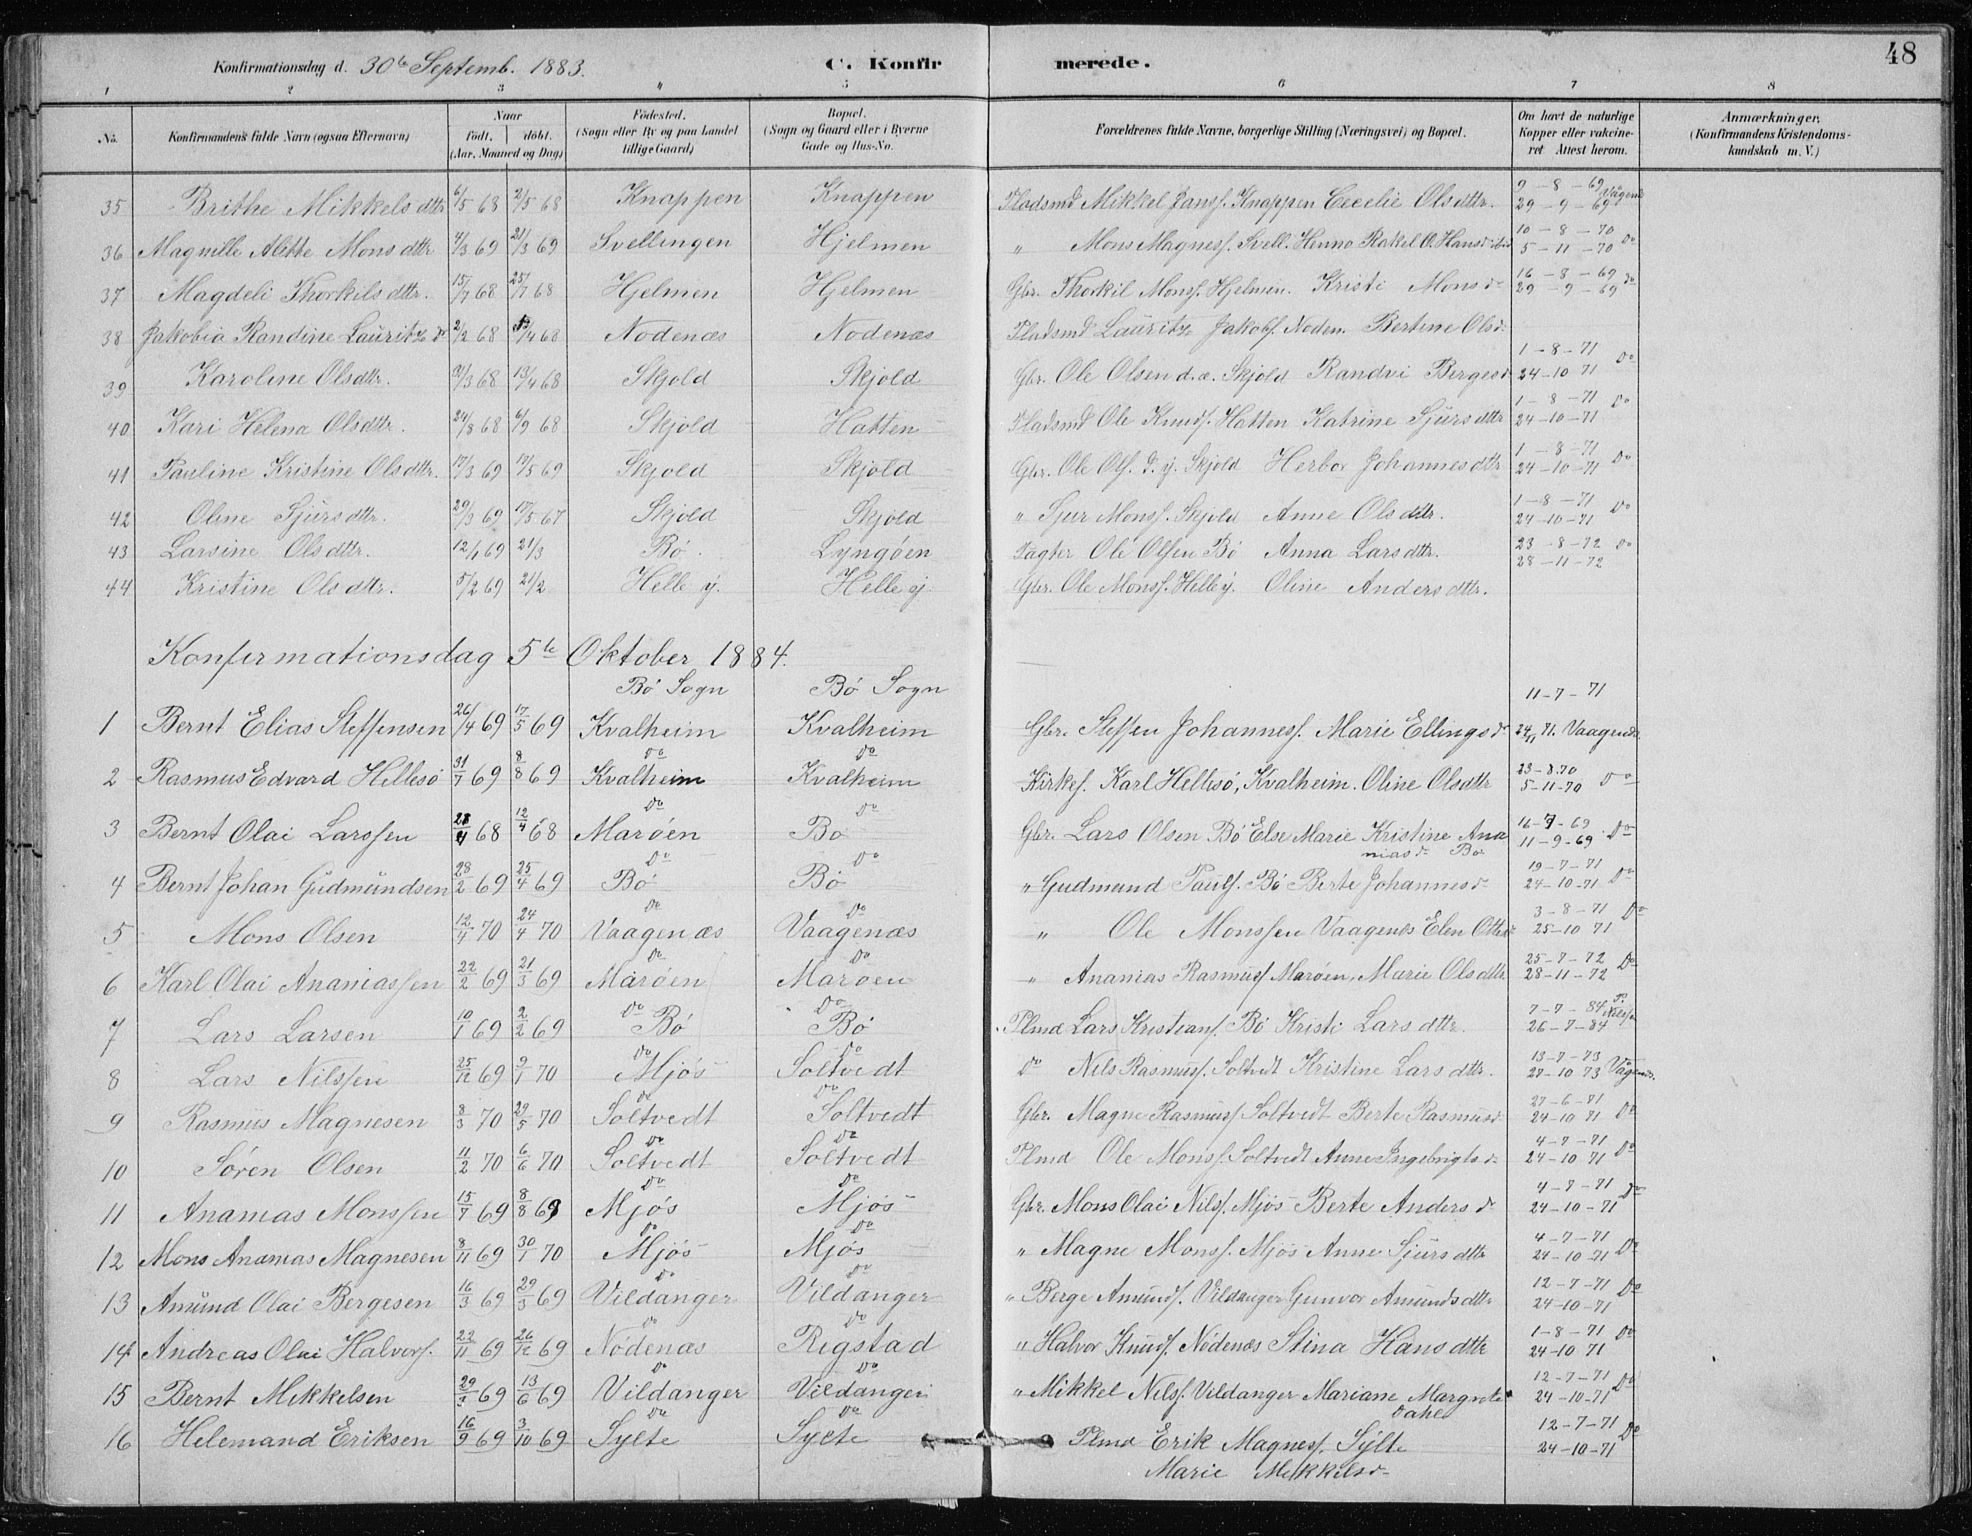 48
Konfirmationsdag d. 30te Septemb. 1883. C. Konfirmerede.
1 2 3 4 5 6 7 8
No. Konfirmandens fulde Navn (ogsaa Efternavn) Naar født. døbt. (Aar, Maaned og Dag) Fødested. (Sogn eller By og paa Landet tillige Gaard) Bopæl. (Sogn og Gaard eller i Byerne Gade og Hus-No. Forældrenes fulde Navne, borgerlige Stilling (Næringsvei) og Bopæl. Om havt de naturlige Kopper eller vakcineret Attest herom. Anmærkninger. (Konfirmandens Kristendomskundskab m. V.)
35 Brithe Mikkelsdttr 6/5 68 2/5 68 Knappen Knappen Pladsmd Mikkel Jansf. Knappen Cecelie Olsdttr. 9-8-69 29-9-69 Vågenæ
36 Magnille Alette Monsdttr 4/3 69 21/3 69 Svellingen Hjelmen " Mons Magnesf. Svell. Henno Rakel O. Hansd 10-8-70 5-11-70 Do
37 Magdeli Thorkilsdttr. 15/7 68 25/7 68 Hjelmen Hjelmen Gbr. Thorkil Monsf. Hjelmen. Kristi Monsdr 16-8-69 29-9-69 do
38 Jakobia Randine Lauritzdr 2/2 68 /4 68 Nodenæs Nodenæs Pladsmd Lauritz Jakobf. Noden. Bertine Olsdr
39 Karoline Olsdttr. /3 68 13/4 68 Skjold Skjold Gbr. Ole Olsen d.æ. Skjold Randvi Bergesd 1-8-71 24-10 71 Do
40 Kari Helena Olsdttr. 24/8 68 6/9 68 Skjold Hatten Pladsmd Ole Knudf. Hatten Katrine Sjursdttr 1-8-71 24-10-71 Do
41 Pauline Kristine Olsdttr. 17/3 69 17/5 69 Skjold Skjold Gbr. Ole Olf. d. y. Skjold Herbor Johannesdttr 1-8-71 24-10-71 Do
42 Oline Sjursdttr. 29/3 69 17/5 67 Skjold Skjold " Sjur Monsf. Skjold Anne Olsdttr. 1-8-71 24-10-71 Do
43 Larsine Olsdttr. 12/1 69 21/3 Bö Lyngöen Pagter Ole Olsen Bö Anna Larsdttr. 23-8-72 28-11-72 Do
44 Kristine Olsdttr. 5/2 69 21/2 Helle y. Helle y. Gbr. Ole Monsf. Helle y. Oline Andersdttr.
Konfirmationsdag 5te Oktober 1884.
Bö Sogn Bö Sogn
1 Bernt Elias Steffensen 26/4 69 17/5 69 Kvalheim Kvalheim Gbr. Steffen Johannesf. Marie Ellingsdr 11-7-71 24/11 71. Vaagenæs
2 Rasmus Edvard Hellesö 31/7 69 8/8 69 Do Kvalheim Do Kvalheim Kirkes. Karl Hellesö, Kvalheim. Oline Olsdttr 23-8.70 5-11-70 Do
3 Bernt Olai Larssen 28/4 68 12/4 68 Do Maröen Do Bö Gbr. Lars Olsen Bö Else Marie Kristine Ananiasdr Bö 16-7-69 11-9-69 Do
4 Bernt Johan Gudmundsen 28/2 69 25/4 69 Do Bö Do Bö " Gudmund Paulf. Bö Berte Johannesdr 19-7-71 24-10-71 Do
5 Mons Olsen 12/4 70 24/4 70 Do Vaagenæs Do Vaagenæs " Ole Monssen Vaagenæs Elen Ottesd 3-8-71 25-10 71 Do
6 Karl Olai Ananiassen 22/2 69 21/3 69 Do Maröen Do Maröen " Ananias Rasmusf Maröen, Marie Olsdttr 25-7-72 28-11-72 Do
7 Lars Larsen 10/1 69 2/2 69 Do Bö Do Bö Plmd Lars Kristianf. Bö Kristi Larsdttr. 7-7-84 26-7-84 P. Nilssen
8 Lars Nilssen 25/12 69 9/1 70 Do Mjös Soltvedt Do Nils Rasmusf. Soltvedt Kristine Larsdttr. 13-7-73 27-10 73 Vågenæs.
9 Rasmus Magnesen 8/3 70 29/5 70 Do Soltvedt Do Soltvedt Gbr. Magne Rasmusf Soltvedt Berte Rasmusdr 27-6-71 24-10 71 Do
10 Sören Olsen 11/2 70 6/6 70 Do Soltvedt Do Soltvedt Plmd Ole Monsf. Soltvedt Anne Ingebrigtsdr 4-7-71 24-10 71 Do
11 Ananias Monssen 15/7 69 8/8 69 Do Mjös Do Mjös Gbr. Mons Olai Nilsf. Mjös Berte Andersdr 4-7-71 24-10-71 Do
12 Mons Ananias Magnesen 8/11 69 30/1 70 Do Mjös Do Mjös " Magne Monsf. Mjös Anne Sjursdttr 4-7-71 24-10-71 Do
13 Amund Olai Bergesen 16/3 69 29/3 69 Do Vildanger Do Vildanger " Berge Amundf. Vildanger Gunvor Amundsdttr 12-7-71 24-10-71 Do
14 Andreas Olai Halvorf. 22/11 69 26/12 69 Do Nödenæs Do Rigstad " Halvor Knudf. Nödenæs Stina Hansdttr 1-8-71 24-10 71 Do
15 Bernt Mikkelsen 29/3 69 13/6 69 Do Vildanger Do Vildanger " Mikkel Nilsf. Vildanger Mariane Margrete Dahl 12-7-71 24-10-71 Do
16 Helemand Eriksen 16/9 69 3/10 69 Do Sylte Do Sylte Plmd Erik Magnesf. Sylte 12-7-71 24-10-71 Do
Marie Mikkelsdr